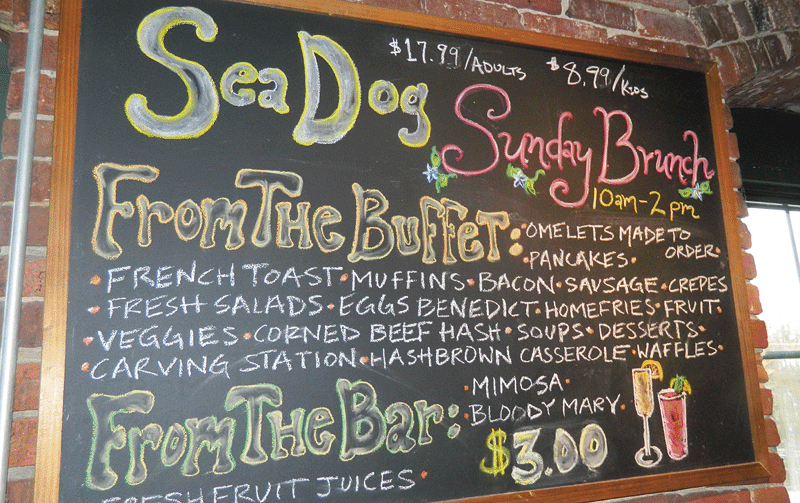 Sea Dog
$17.99/ADULTS $8.99/KIDS
Sunday Brunch
10am-2pm
FROM THE BUFFET: • OMELETS MADE TO ORDER •
• PANCAKES •
• FRENCH TOAST • MUFFINS • BACON • SAUSAGE • CREPES
• FRESH SALADS • EGGS BENEDICT • HOMEFRIES • FRUIT •
• VEGGIES • CORNED BEEF HASH • SOUPS • DESSERTS •
• CARVING STATION • HASHBROWN CASSEROLE • WAFFLES •
FROM THE BAR: • MIMOSA •
• BLOODY MARY •
$3.00
FRESH FRUIT JUICES •